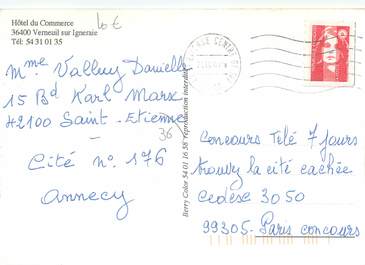 Hôtel du Commerce
36400 Verneuil sur Igneraie
Tél: 54 31 01 35
10 €
Mme Valluy Danielle
15 Bd Karl Marx
42100 Saint-Etienne
36
Cité n° 176
Annecy
Berry Color 54 01 16 58 reproduction interdite
Concours Télé 7 jours
trouvez la cité cachée
Cedesc 3050
99305 - Paris concours